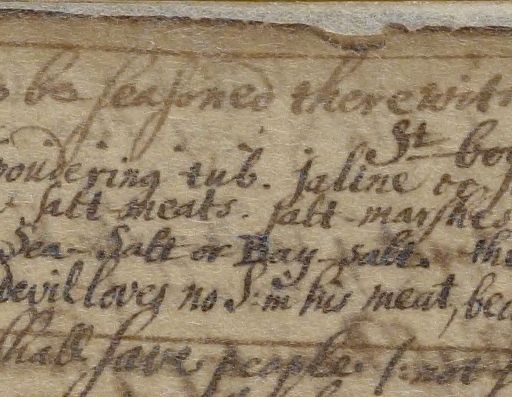 be seasoned therewith
St bo
poudering tub. saline or
salt meats. salt marshes
Sea-Salt or Bay salt. the
devil loves no S: in his meat, bec
shall save people /: not